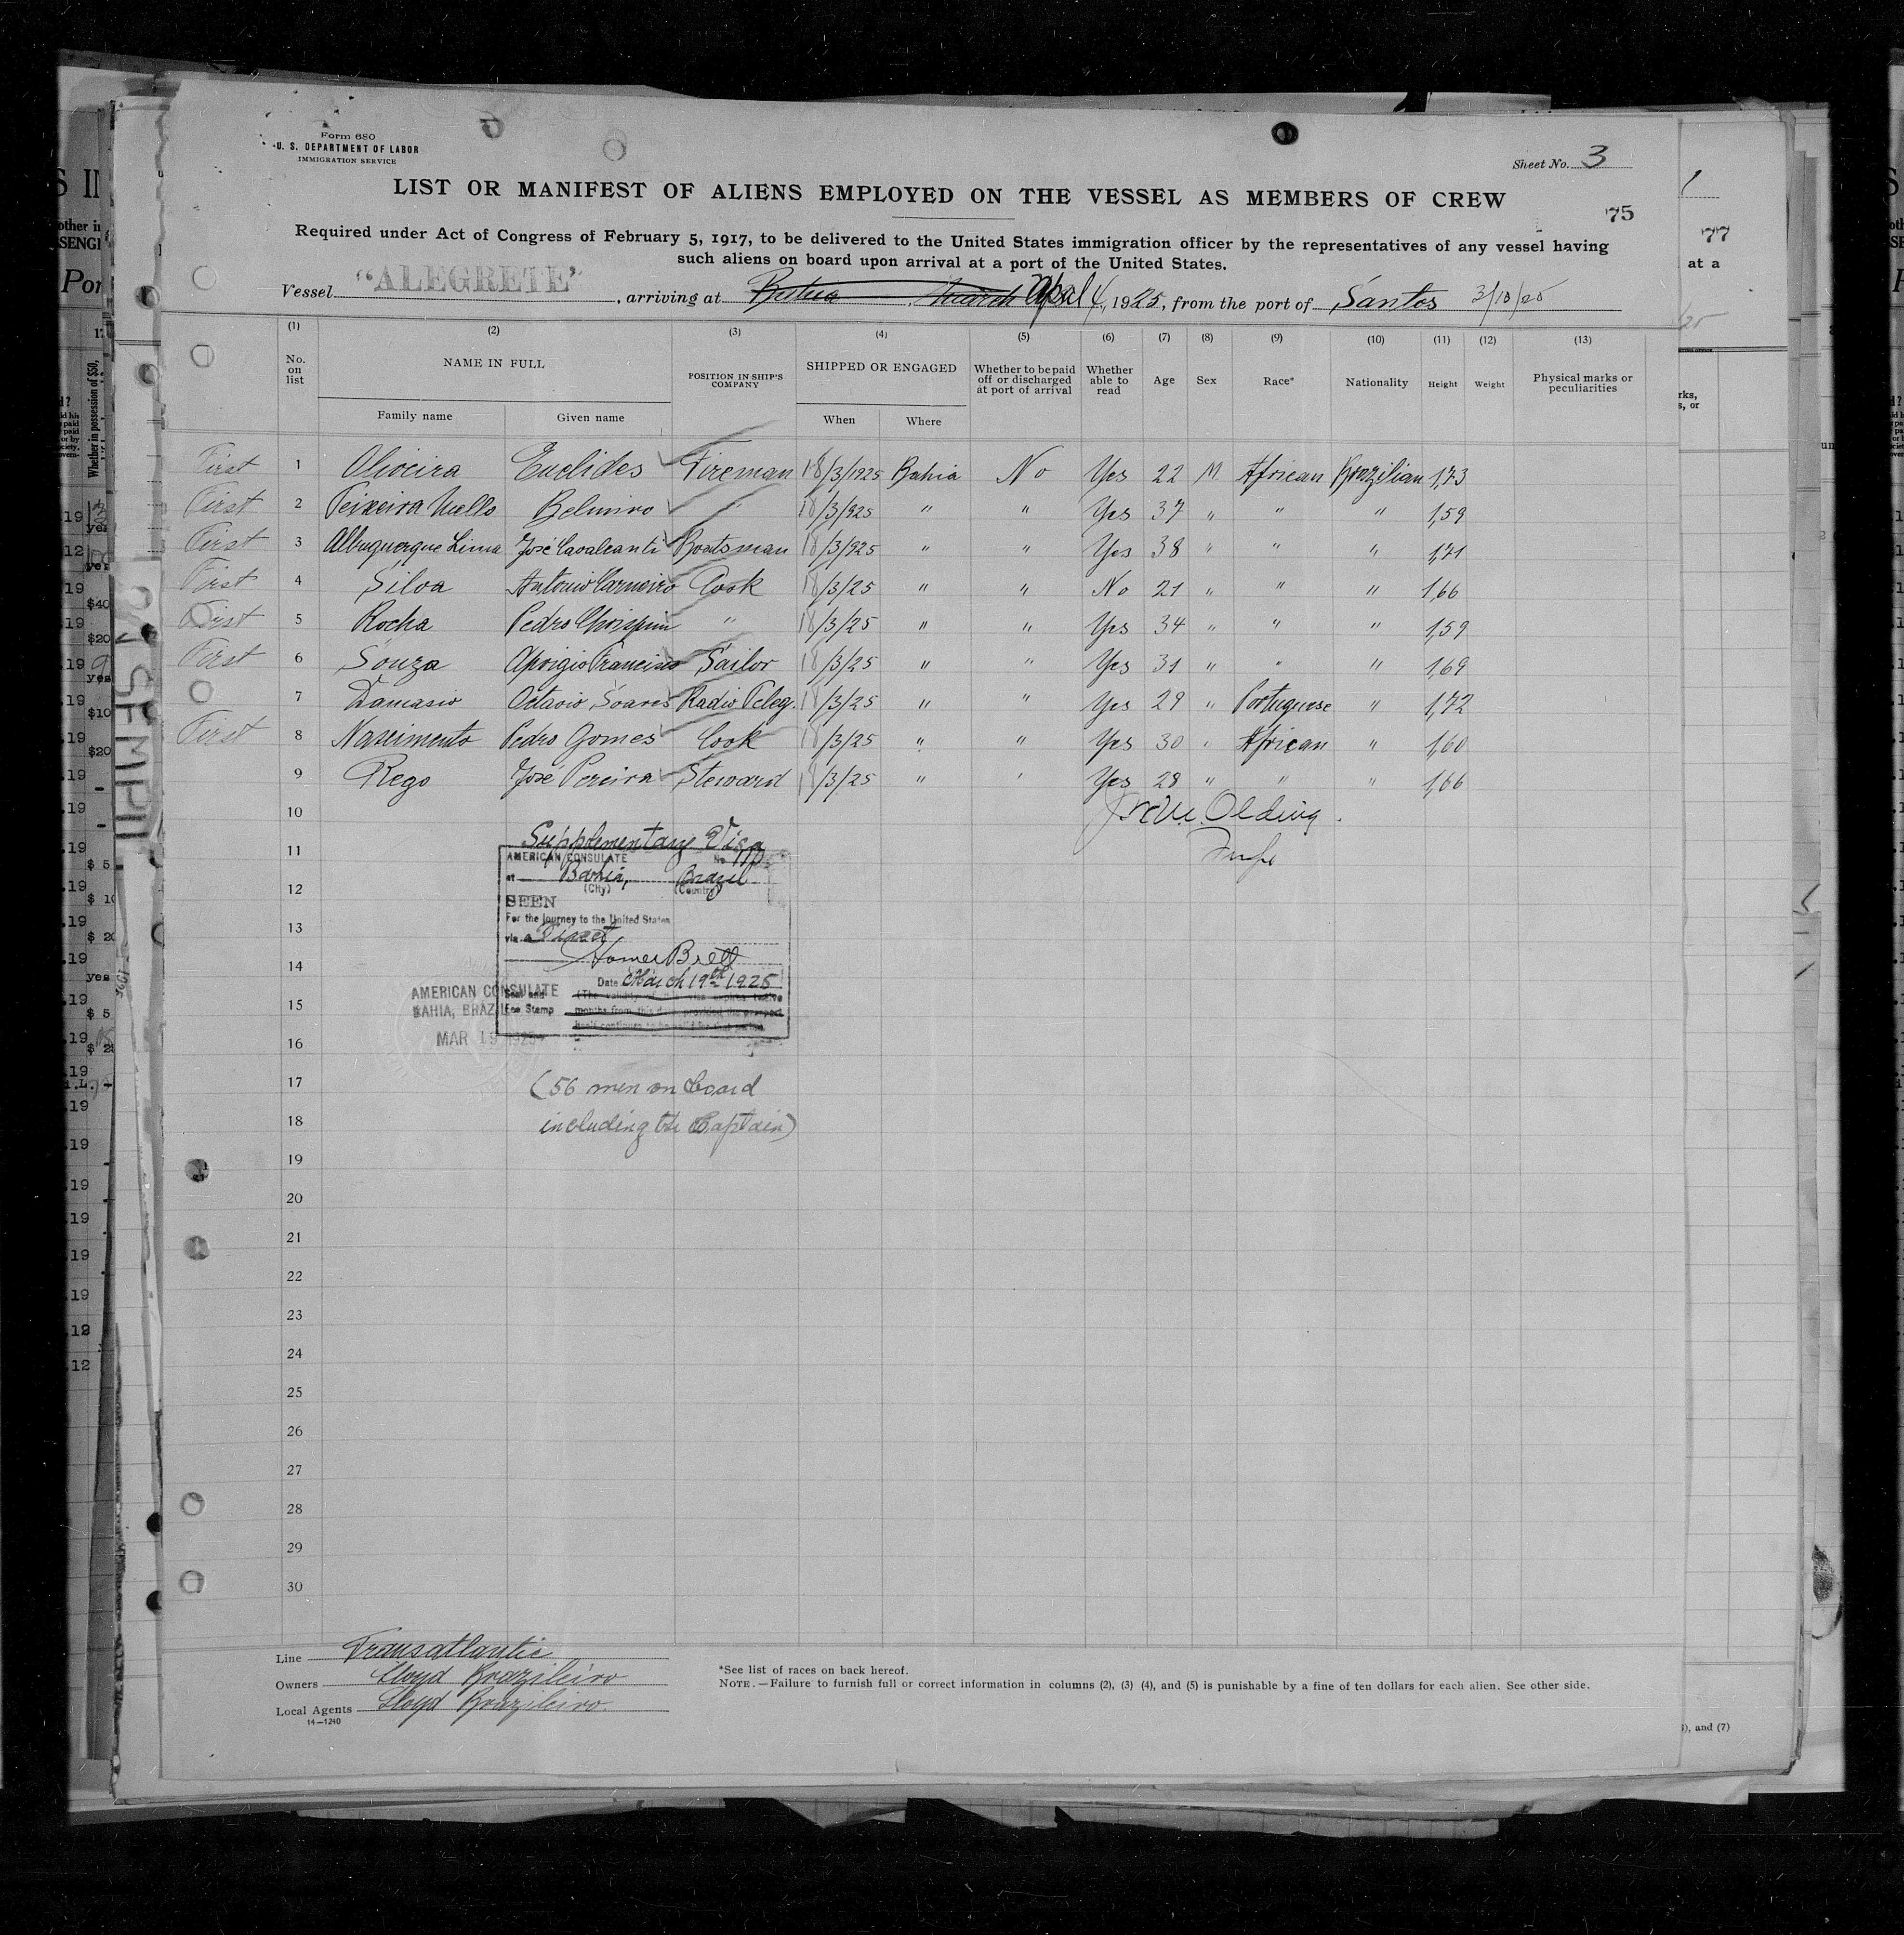 Form 680
U. S. DEPARTMENT OF LABOR
IMMIGRATION SERVICE
Sheet No. 3
LIST OR MANIFEST OF ALIENS EMPLOYED ON THE VESSEL AS MEMBERS OF CREW
75
77
Required under Act of Congress of February 5, 1917, to be delivered to the United States immigration officer by the representatives of any vessel having
such aliens on board upon arrival at a port of the United States.
at a
Vessel "ALEGRETE", arriving at March April 4, 1925, from the port of Santos 3/13/25
(1) (2) (3) (4) (5) (6) (7) (8) (9) (10) (11) (12) (13)
No. on list NAME IN FULL POSITION IN SHIP'S COMPANY SHIPPED OR ENGAGED Whether to be paid off or discharged at port of arrival Whether able to read Age Sex Race* Nationality Height Weight Physical marks or peculiarities
Family name Given name When Where
First 1 Oliveira Euclides Fireman 18/3/1925 Bahia No Yes 22 M African Brazilian 1,73
First 2 Teixeira Mello Belmiro " 18/3/925 " " Yes 37 " " " 1,59
First 3 Albuquerque Lima José Cavalcanti Boatsman 18/3/925 " " Yes 38 " " " 1,71
First 4 Silva Antonio Carneiro Cook 18/3/25 " " No 21 " " " 1,66
First 5 Rocha Pedro " 18/3/25 " " Yes 34 " " " 1,59
First 6 Souza Aprigio Francisco Sailor 18/3/25 " " Yes 31 " " " 1,69
7 Damasio Octavio Soares Radio Teleg. 18/3/25 " " Yes 29 " Portuguese " 1,72
First 8 Nascimento Pedro Gomes Cook 18/3/25 " " Yes 30 " African " 1,60
9 Rego José Pereira Steward 18/3/25 " ' Yes 28 " " " 1,66
10 Olding.
11
12
13
14
15
16
17
18
19
20
21
22
23
24
25
26
27
28
29
30
Supplementary Visa
AMERICAN CONSULATE No.
at Bahia, Brazil
(City) (Country)
SEEN
For the journey to the United States
via Direct
Homer Brett
Date March 19th 1925
Seal and
Fee Stamp
AMERICAN CONSULATE
BAHIA, BRAZIL
MAR 19 1925
(56 men on board
including the Captain)
Line Transatlantic
Owners Lloyd Brazileiro
Local Agents Lloyd Brazileiro.
14—1240
*See list of races on back hereof.
NOTE.—Failure to furnish full or correct information in columns (2), (3) (4), and (5) is punishable by a fine of ten dollars for each alien. See other side.
, and (7)